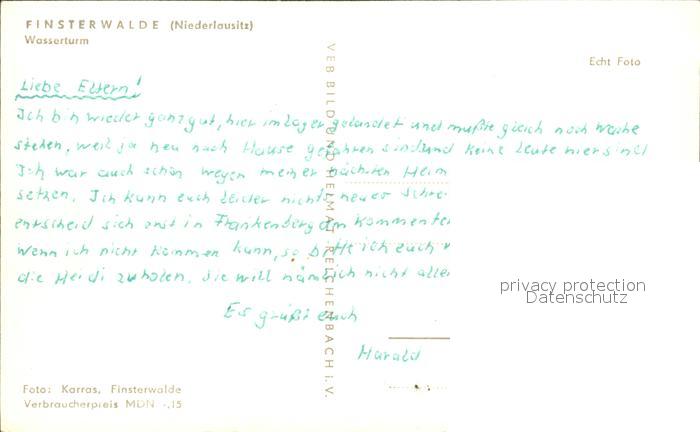 FINSTERWALDE (Niederlausitz)
Wasserturm
Echt Foto
Liebe Eltern!
Ich bin wieder ganz gut, hier im Lager gelandet und mußte gleich noch Wache
stehen, weil ja neu nach Hause gefahren sind und keine Leute hier sind
Ich war auch schön wegen meiner nächsten Heim
setzen. Ich kann euch leider nichts neues Schre
entscheid sich erst in Frankenberg am kommenten
Wenn ich nicht kommen kann, so bitte ich euch
die Heidi zuholen. Sie will nämlich nicht alle
Es grüßt euch
Harald
VEB BILD UND HEIMAT REICHENBACH i. V.
privacy protection
Datenschutz
Foto: Karras, Finsterwalde
Verbraucherpreis MDN -,15